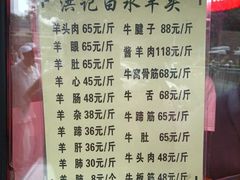 洪记白水羊头
羊头肉 65元/斤 牛腱子 88元/斤
羊 眼 65元/斤 酱羊肉 118元/斤
羊 肚 65元/斤 牛窝骨筋 85元/斤
羊 心 45元/斤 牛 舌 68元/斤
羊 肠 48元/斤 牛蹄筋 65元/斤
羊 杂 38元/斤 牛 肚 65元/斤
羊 蹄 36元/斤 牛头肉 48元/斤
羊 肝 36元/斤 牛 肺 40元/斤
羊 肺 30元/斤 牛头肉 48元/斤
羊 蹄 8元/个 牛板筋 48元/斤